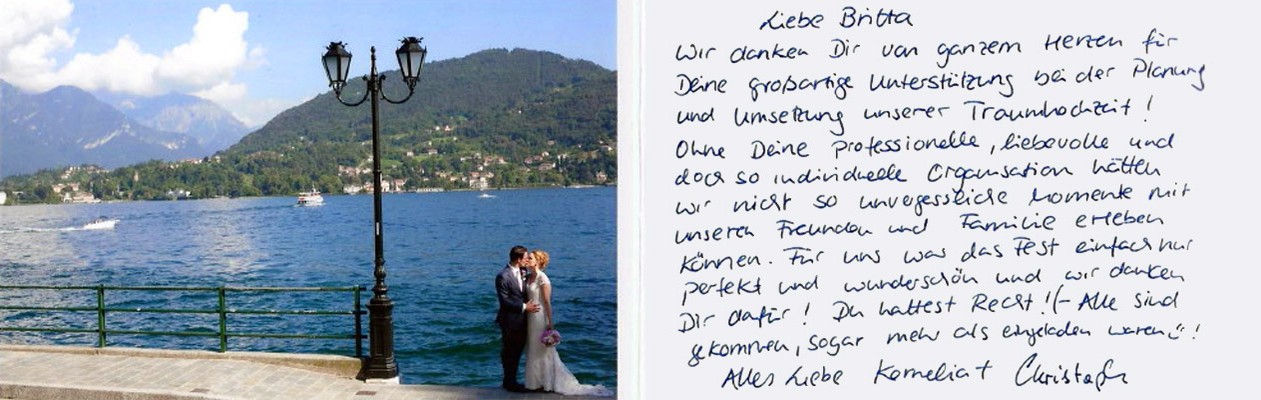 Liebe Britta
Wir danken Dir von ganzem Herzen für
Deine großartige Unterstützung bei der Planung
und Umsetzung unserer Traumhochzeit!
Ohne Deine professionelle, liebevolle und
doch so individuelle Organisation hätten
wir nicht so unvergessliche Momente mit
unseren Freunden und Familie erleben
können. Für uns was das Fest einfach nur
perfekt und wunderschön und wir danken
Dir dafür! Du hattest Recht! (- Alle sind
gekommen, sogar mehr als eingeladen waren !
Alles Liebe Kornelia + Christoph